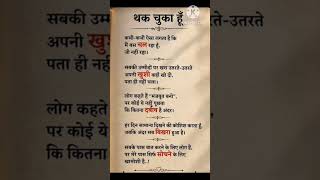 थक चुका हूँ
कभी-कभी ऐसा लगता है कि
मैं बस चल रहा हूँ,
जी नहीं रहा।
सबकी उम्मीदों पर खरा उतरते-उतरते
अपनी खुशी कहाँ खो दी,
पता ही नहीं चला।
लोग कहते हैं "मजबूत बनो",
पर कोई ये नहीं पूछता
कि कितना है अंदर।
हर दिन सामान्य दिखने की कोशिश करता हूँ,
जबकि अंदर सब बिखरा हुआ है।
सबके पास बात करने के लिए लोग हैं,
पर मेरे पास सिर्फ सोचने के लिए
खामोशी है..!
सबकी उम्
उतरते-उतरते
अपनी खु
पता ही न
लोग कहते
पर कोई ये
कि कितन